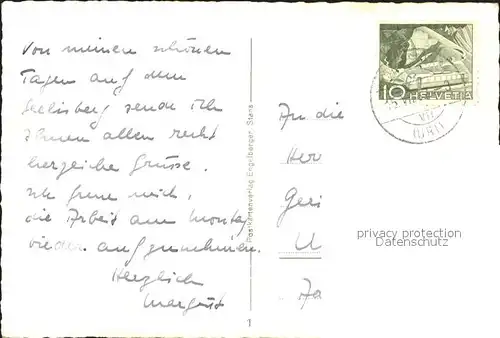 Von meinen schönen
Tagen auf dem
Seelisberg sende ich
Ihnen allen recht
herzliche Grüsse.
Ich freue mich,
die Arbeit am Montag
wieder aufzunehmen.
Herzlich
Margrit
Postkartenverlag Engelberger, Stans
1
10 HELVETIA
(URI)
An die
Her
Geri
U
Za
privacy protection
Datenschutz